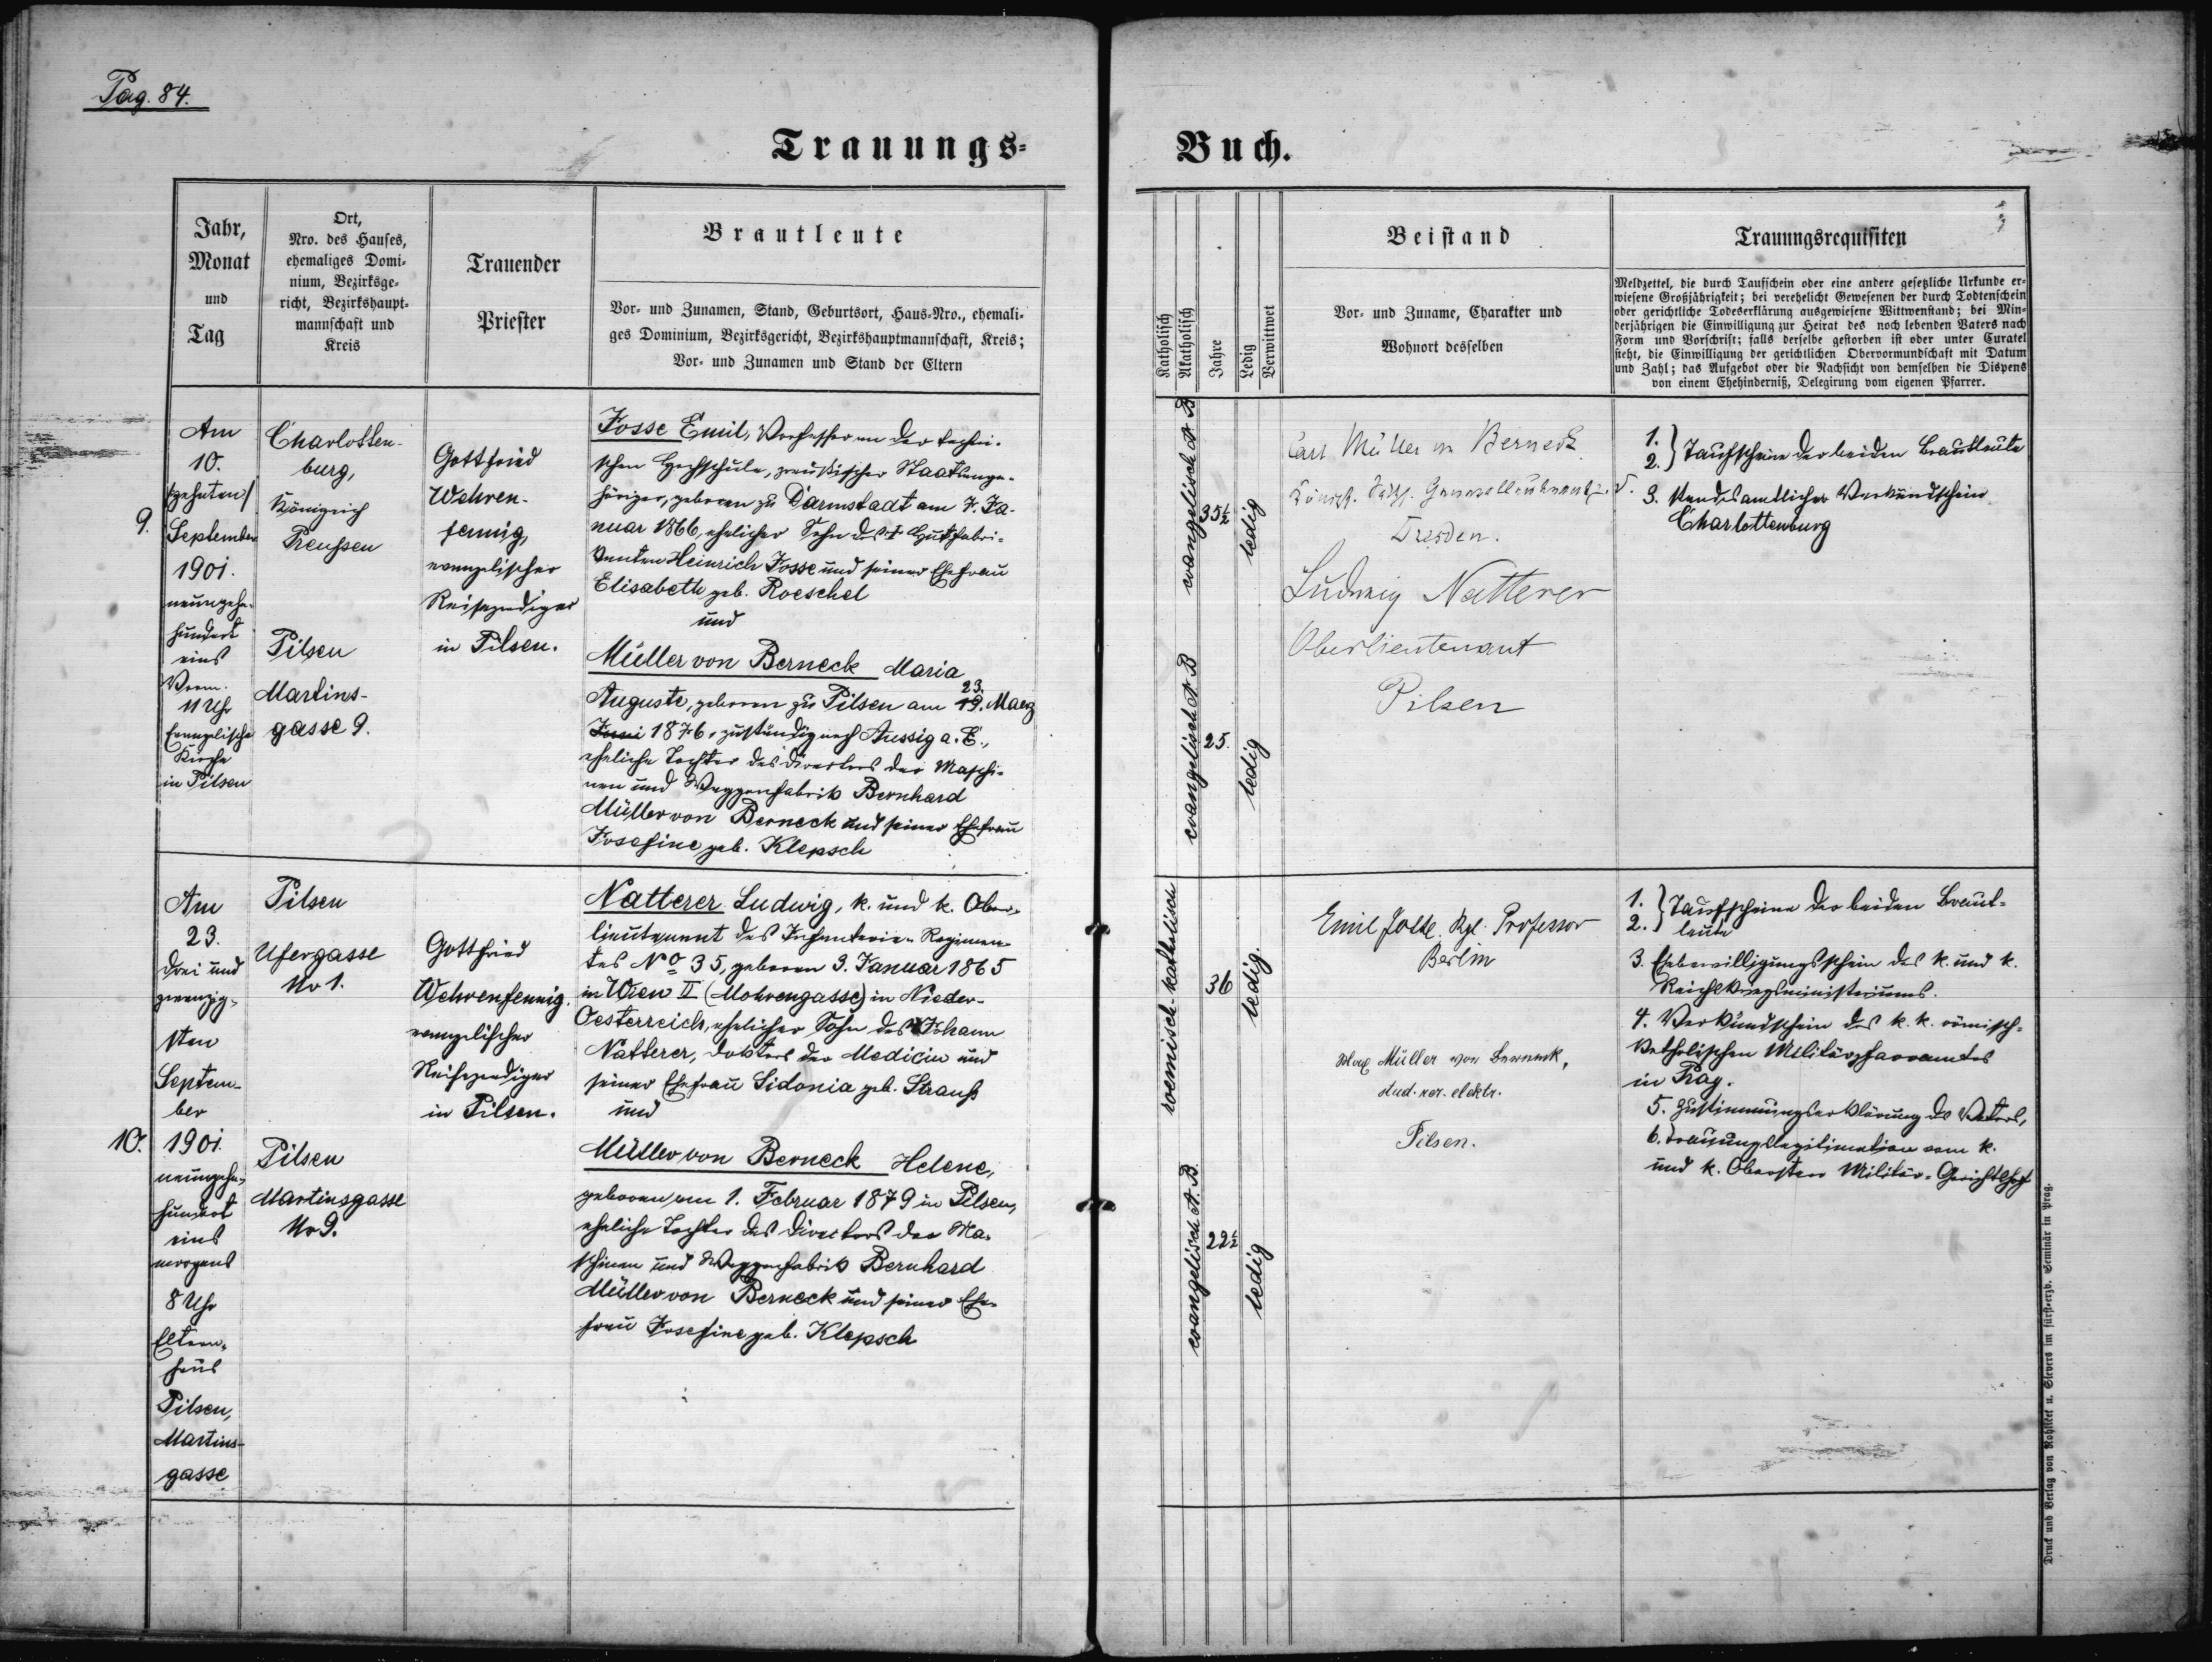 Pag. 84.
Trauungs-
Buch.
Jahr,
Monat
und
Tag
Ort,
Nro. des Hauses,
ehemaliges Domi-
nium, Bezirksge-
richt, Bezirkshaupt-
mannschaft und
Kreis
Trauender
Priester
Brautleute
Vor- und Zunamen, Stand, Geburtsort, Haus-Nro., ehemali-
ges Dominium, Bezirksgericht, Bezirkshauptmannschaft, Kreis;
Vor- und Zunamen und Stand der Eltern
Katholisch
Akatholisch
Jahre
Ledig
Verwittwet
Beistand
Vor- und Zuname, Charakter und
Wohnort desselben
Trauungsrequisiten
Meldzettel, die durch Taufschein oder eine andere gesetzliche Urkunde er-
wiesene Großjährigkeit; bei verehelicht Gewesenen der durch Todtenschein
oder gerichtliche Todeserklärung ausgewiesene Wittwenstand; bei Min-
derjährigen die Einwilligung zur Heirat des noch lebenden Vaters nach
Form und Vorschrift; falls derselbe gestorben ist oder unter Curatel
steht, die Einwilligung der gerichtlichen Obervormundschaft mit Datum
und Zahl; das Aufgebot oder die Nachsicht von demselben die Dispens
von einem Ehehinderniß, Delegirung vom eigenen Pfarrer.
9.
Am
10.
/zehnten/
September
1901.
neunzehn-
hundert
eins
Vorm.
11 Uhr
Evangelische
Kirche
in Pilsen
Charlotten-
burg,
Königreich
Preußen
Pilsen
Martins-
gasse 9.
Gottfried
Wehren-
fennig,
evangelischer
Reiseprediger
in Pilsen.
Josse Emil, Professor an der techni-
schen Hochschule, preußischer Staatsange-
höriger, geboren zu Darmstadt am 7. Ja-
nuar 1866, ehelicher Sohn des † Hutfabri-
kanten Heinrich Josse und seiner Ehefrau
Elisabeth geb. Roeschel
und
Müller von Berneck Maria
23.
Auguste, geboren zu Pilsen am 19. Maerz
Juni 1876, zuständig nach Aussig a. E.,
eheliche Tochter des Directors der Maschi-
nen und Waggonfabrik Bernhard
Müller von Berneck und seiner Ehefrau
Josefine geb. Klepsch
evangelisch A B
35½
ledig
evangelisch A B
25.
ledig
Carl Müller v. Berneck
Königl. Sächs. Generalleutnant z. D.
Dresden.
Ludwig Natterer
Oberlieutenant
Pilsen
1.
2. } Taufscheine der beiden Brautleute
3. Standesamtlicher Verkündschein
Charlottenburg
10.
Am
23.
drei und
zwanzig-
sten
Septem-
ber
1901.
neunzehn-
hundert
eins
morgens
8 Uhr
Eltern-
haus
Pilsen,
Martins-
gasse
Pilsen
Ufergasse
No 1.
Pilsen
Martinsgasse
No 9.
Gottfried
Wehrenfennig.
evangelischer
Reiseprediger
in Pilsen.
Natterer Ludwig, k. und k. Ober-
lieutenant des Infanterie-Regimen-
tes No 35, geboren 3. Januar 1865
in Wien II (Mohrengasse) in Nieder-
Oesterreich, ehelicher Sohn des Johann
Natterer, Doktors der Medicin und
seiner Ehefrau Sidonia geb. Strauß
und
Müller von Berneck Helene,
geboren am 1. Februar 1879 in Pilsen,
eheliche Tochter des Directors der Ma-
schinen und Waggonfabrik Bernhard
Müller von Berneck und seiner Ehe-
frau Josefine geb. Klepsch
roemisch-katholisch
36
ledig.
evangelisch A. B.
22½
ledig
Emil Josse, Kgl. Professor
Berlin
Max Müller von Berneck,
stud. rer. elektr.
Pilsen.
1.
2. } Taufscheine der beiden Braut-
leute
3. Ehebewilligungsschein des k. und k.
Reichskriegsministeriums.
4. Verkündschein des k. k. römisch-
katholischen Militärpfarramtes
in Prag.
5. Zustimmungserklärung des Vaters,
6. Trauungslegitimation vom k.
und k. Obersten Militär-Gerichtshof
Druck und Verlag von Rohliček u. Sievers im fürst-erzb. Seminär in Prag.